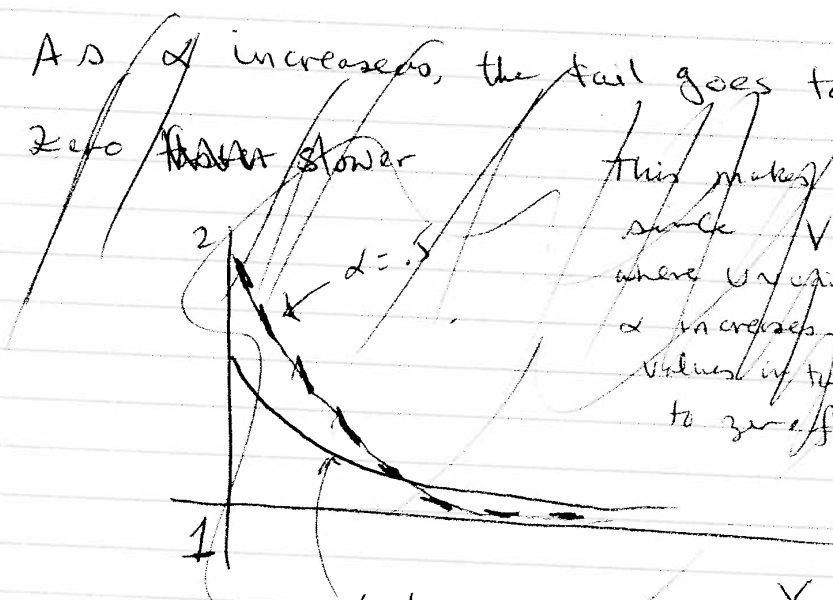 As α increases, the tail goes to
zero slower
this makes
since V
where U
α increases
values in
to zero f
2
α = .5
1
Y